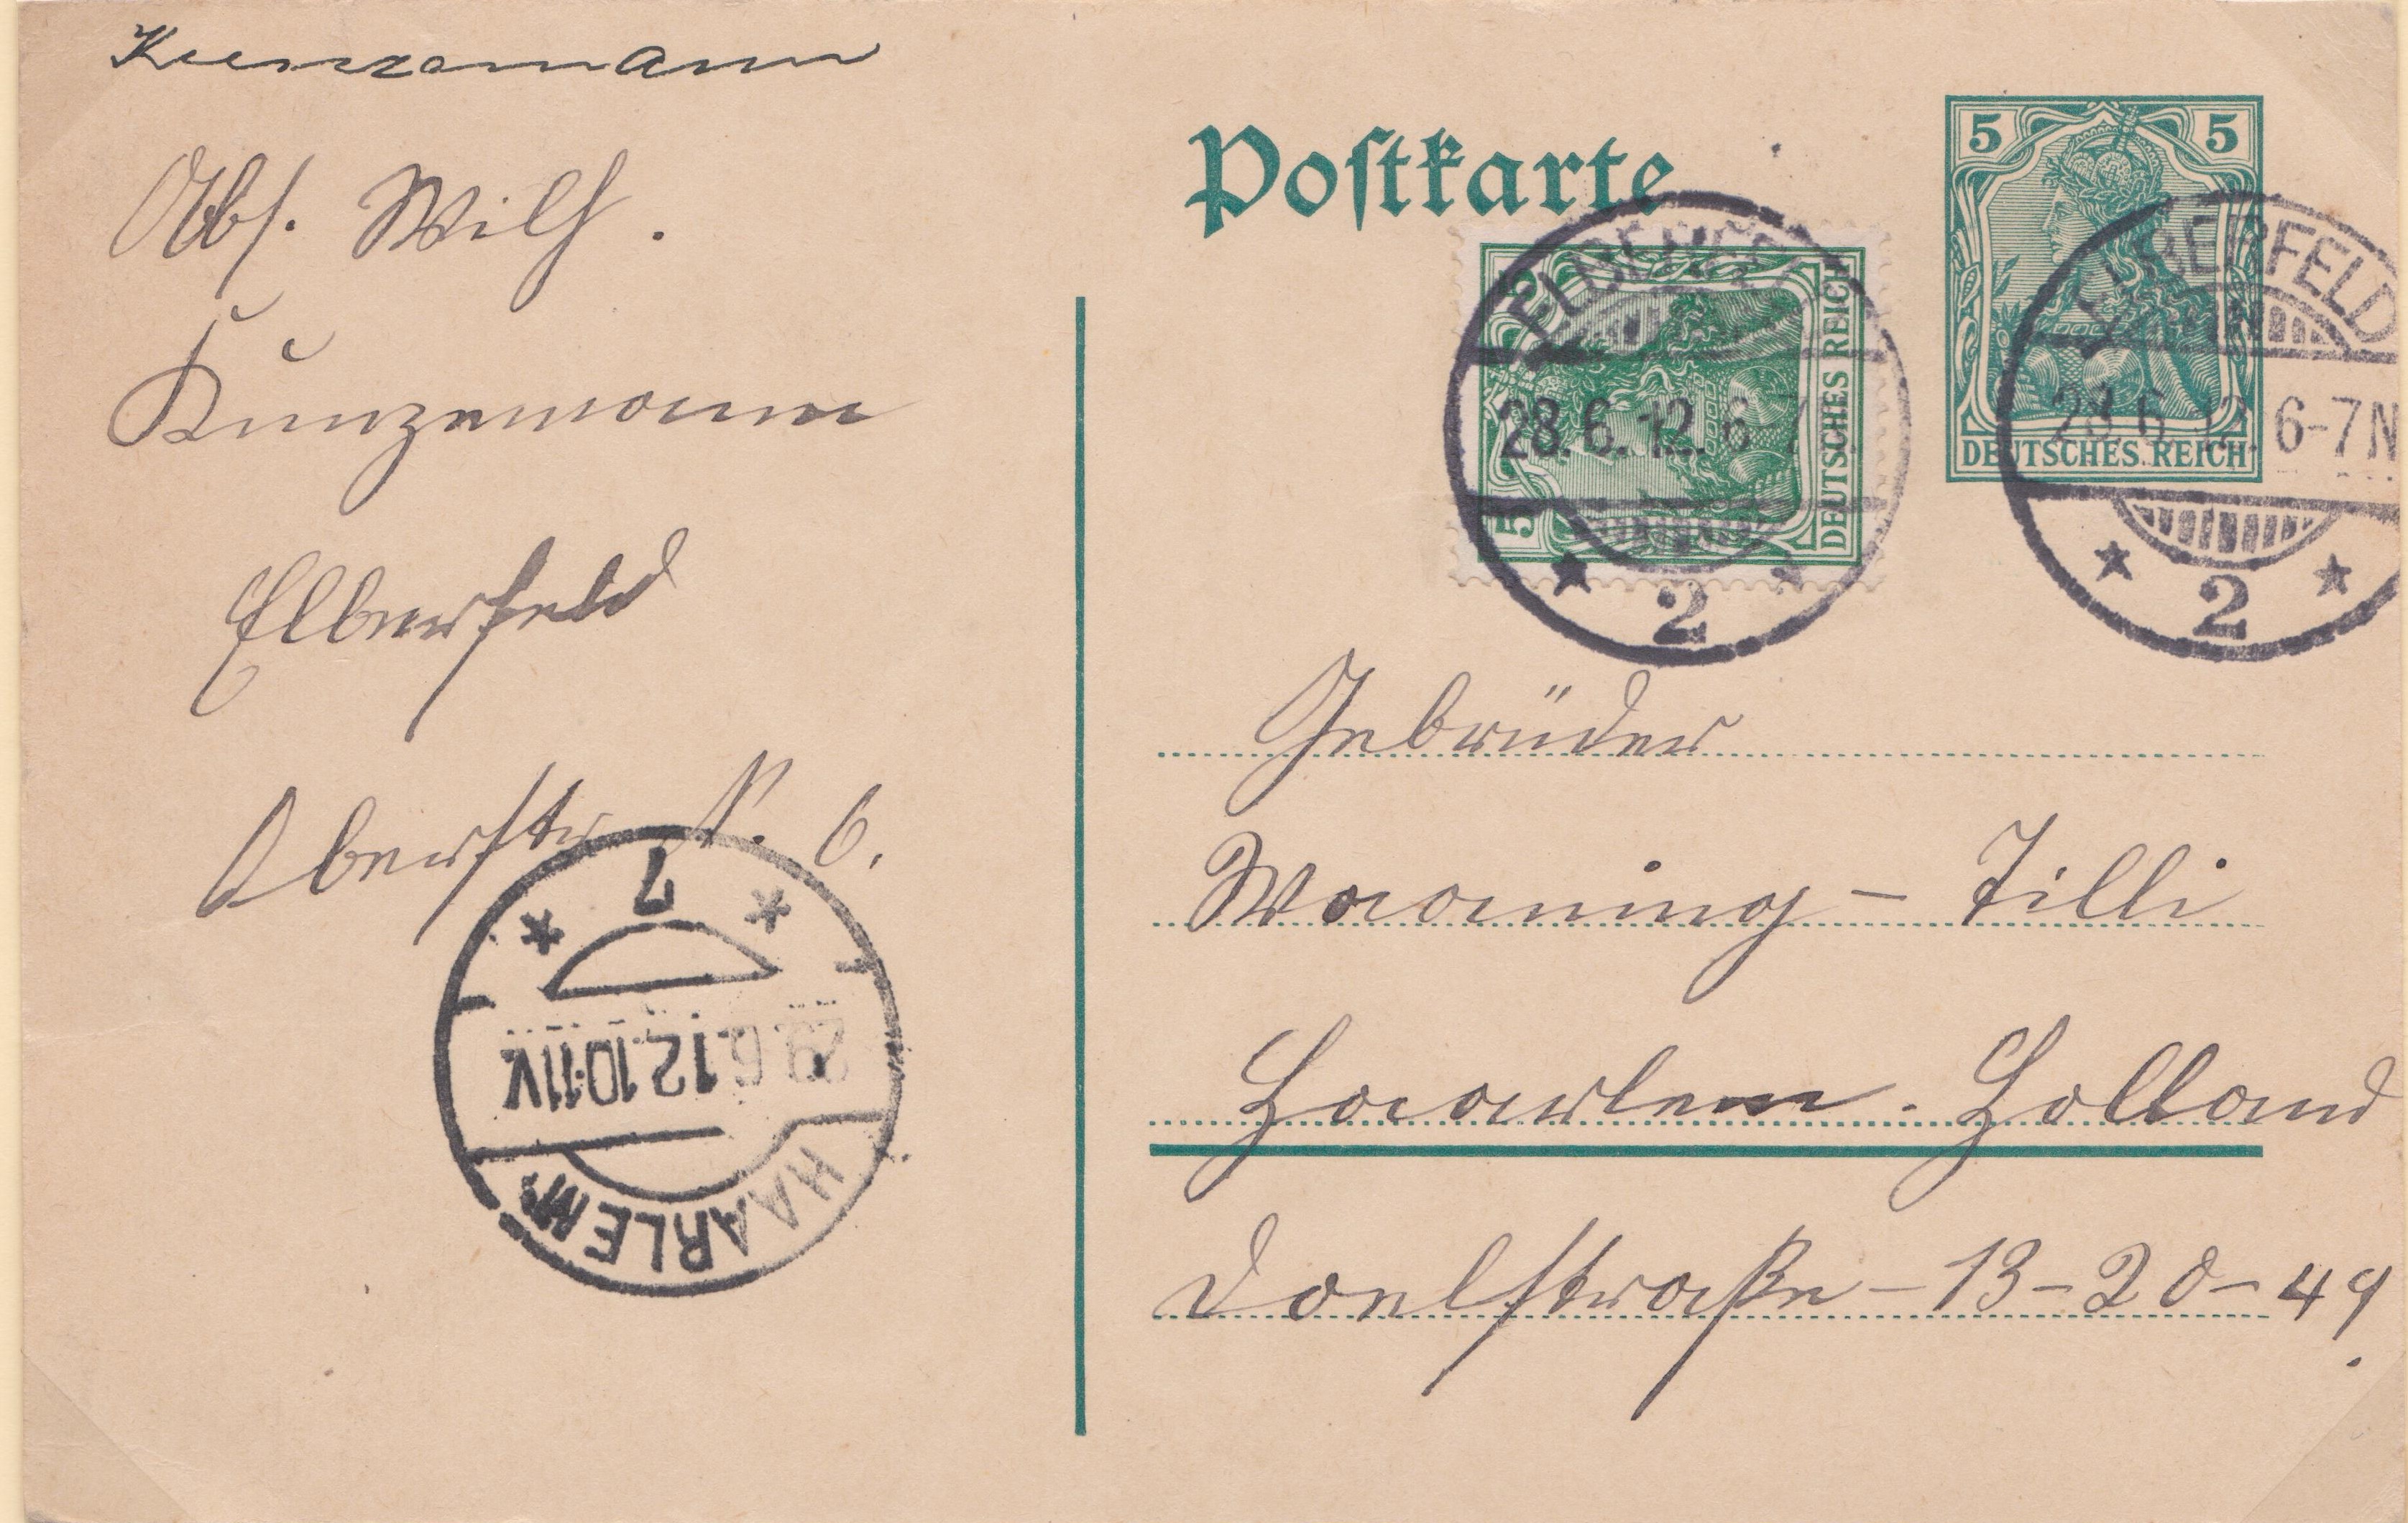 Kunzemann
Abs. Wilh.
Kunzemann
Elberfeld
Oberstr N. 6.
Postkarte
5 5
DEUTSCHES REICH
5
DEUTSCHES REICH
ELBERFELD
28.6.12. 6-7
* 2 *
ELBERFELD
28.6.12. 6-7N
* 2 *
Gebrüder
Waaning - Tilli
Haarlem. Holland
Doelstraße - 13 - 20 - 49.
HAARLEM
29.6.12.10-11V
* 7 *